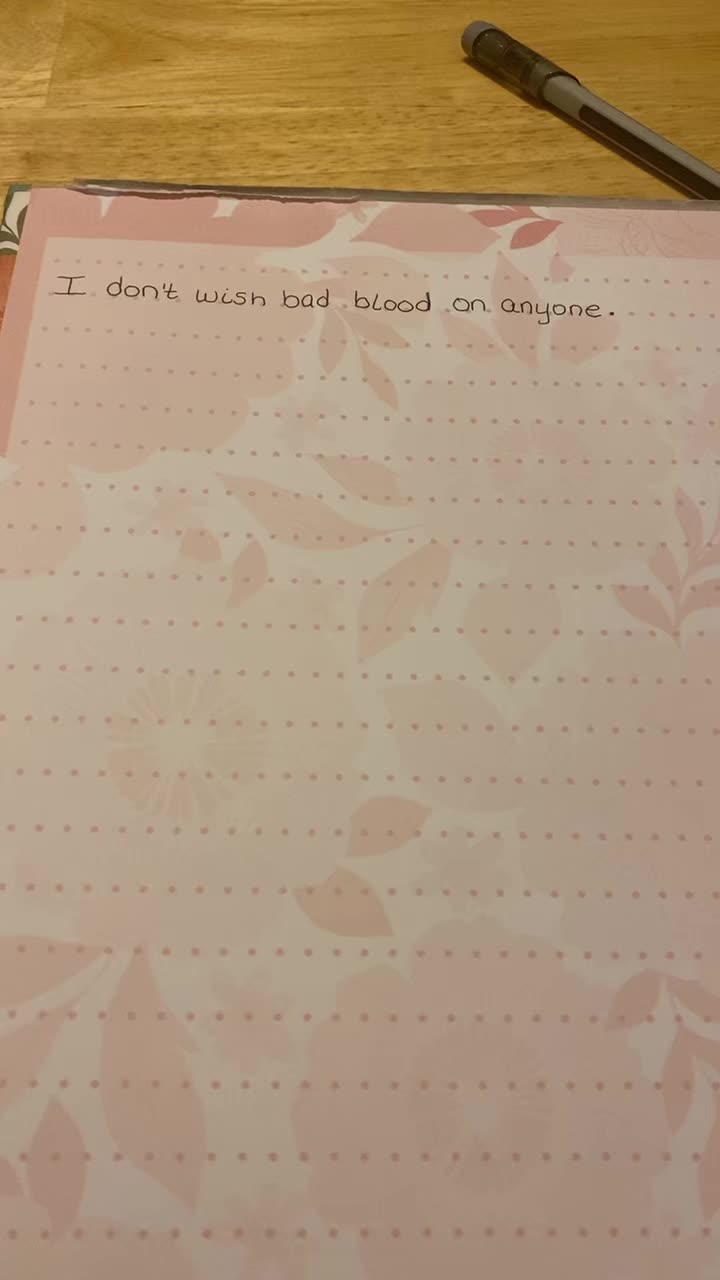 I don't wish bad blood on anyone.